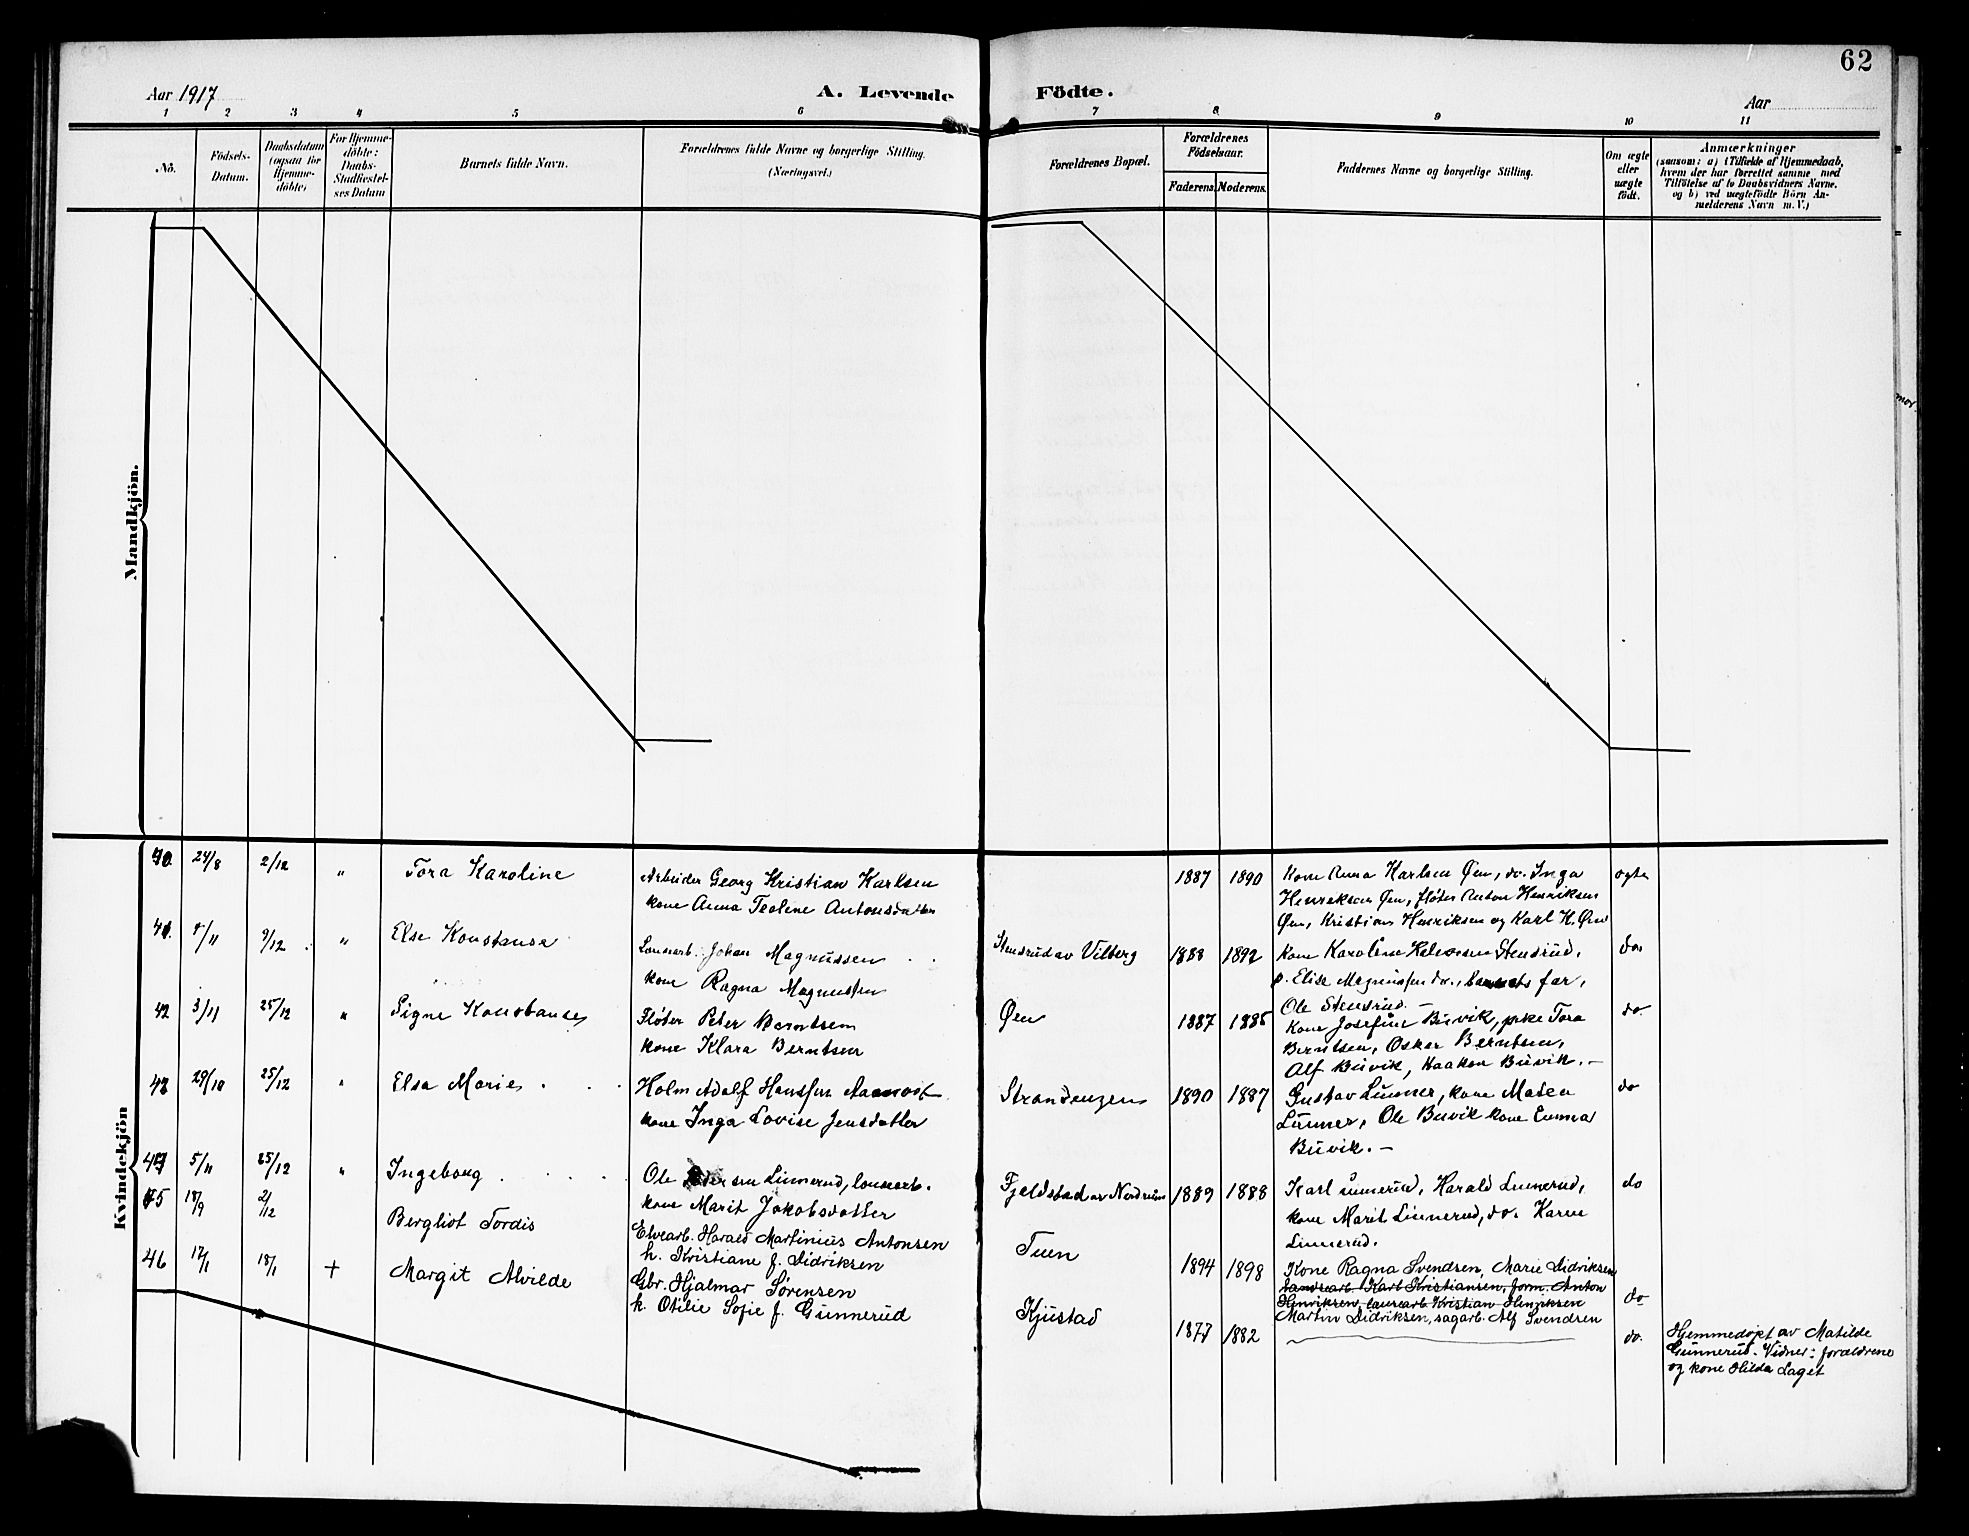 62
Aar 1917
A. Levende
Födte.
Aar
1 2 3 4 5 6 7 8 9 10 11
No.
Födsels-
Datum.
Daabsdatum
(ogsaa för
Hjemme-
döbte)
For Hjemme-
döbte:
Daabs-
Stadfæstel-
ses Datum
Barnets fulde Navn.
Forældrenes fulde Navne og borgerlige Stilling.
(Næringsvei.)
Forældrenes Bopæl.
Forældrenes
Födselsaar.
Faderens. Moderens.
Faddernes Navne og borgerlige Stilling.
Om ægte
eller
uægte
födt.
Anmærkninger
(saasom: a) i Tilfælde af Hjemmedaab,
hvem der har forrettet samme med
Tilföielse af to Daabsvidners Navne.
og b) ved uægtefödte Börn An-
melderens Navn m. V.)
Mandkjön.
Kvindekjön
40 24/8 2/12 " Tora Karoline
Arbeider Georg Kristian Karlsen
kone Anna Teoline Antonsdatter
1887 1890
Kone Anna Karlsen Øen, do. Inga
Henriksen Øen, fløter Anton Henriksen
Øen, Kristian Henriksen og Karl H. Øen
ægte
41. 9/12 " Else Konstanse
Johan Magnussen
kone Ragna Magnussen
Stensrud av Vilberg 1888 1892
kone Karoline Halvorsen Stensrud,
p. Elise Magnussen do., barnets far,
Ole Stensrud. —
do
42 3/11 25/12 " Signe Konstanse
Fløter Peter Berntsen
kone Klara Berntsen
Øen 1887 1885
Kone Josefine Buvik, pike Tora
Berntsen, Oskar Berntsen,
Alf Buvik, Haakon Buvik. —
do.
43 29/10 25/12 " Elsa Marie
Holm Adolf Hanssen
kone Inga Lovise Jensdatter
Strandengen 1890 1887
Gustav Linner, kone Maten
Linner, Ole Buvik kone Emma
Buvik. —
do
44 5/11 25/12 " Ingeborg
Ole Linnerud,
kone Marit Jakobsdatter
Fjeldstad av Nordrum 1889 1888
Karl Linnerud, Harald Linnerud,
kone Marit Linnerud, do. Karen
Linnerud.
do
45 18/9 2/12 Bergliot Tordis
Elvearb. Harald Martinius Antonsen
h. Kristiane f. Didriksen
Tuen 1894 1898
Kone Ragna Svendsen, Marie Didriksen
Landsarb. Karl Kristiansen, form. Anton
Henriksen, lausarb. Kristian Henriksen
Martin Didriksen, sagarb. Alf Svendsen
do
46 17/1 18/1 + Margit Alvilde
Gbr. Hjalmar Sørensen
h. Otilie Sofie f. Gunnerud
Kjustad 1877 1882
do.
Hjemmedøpt av Matilde
Gunnerud. Vidner: forældrene
og kone Hilda Lagit